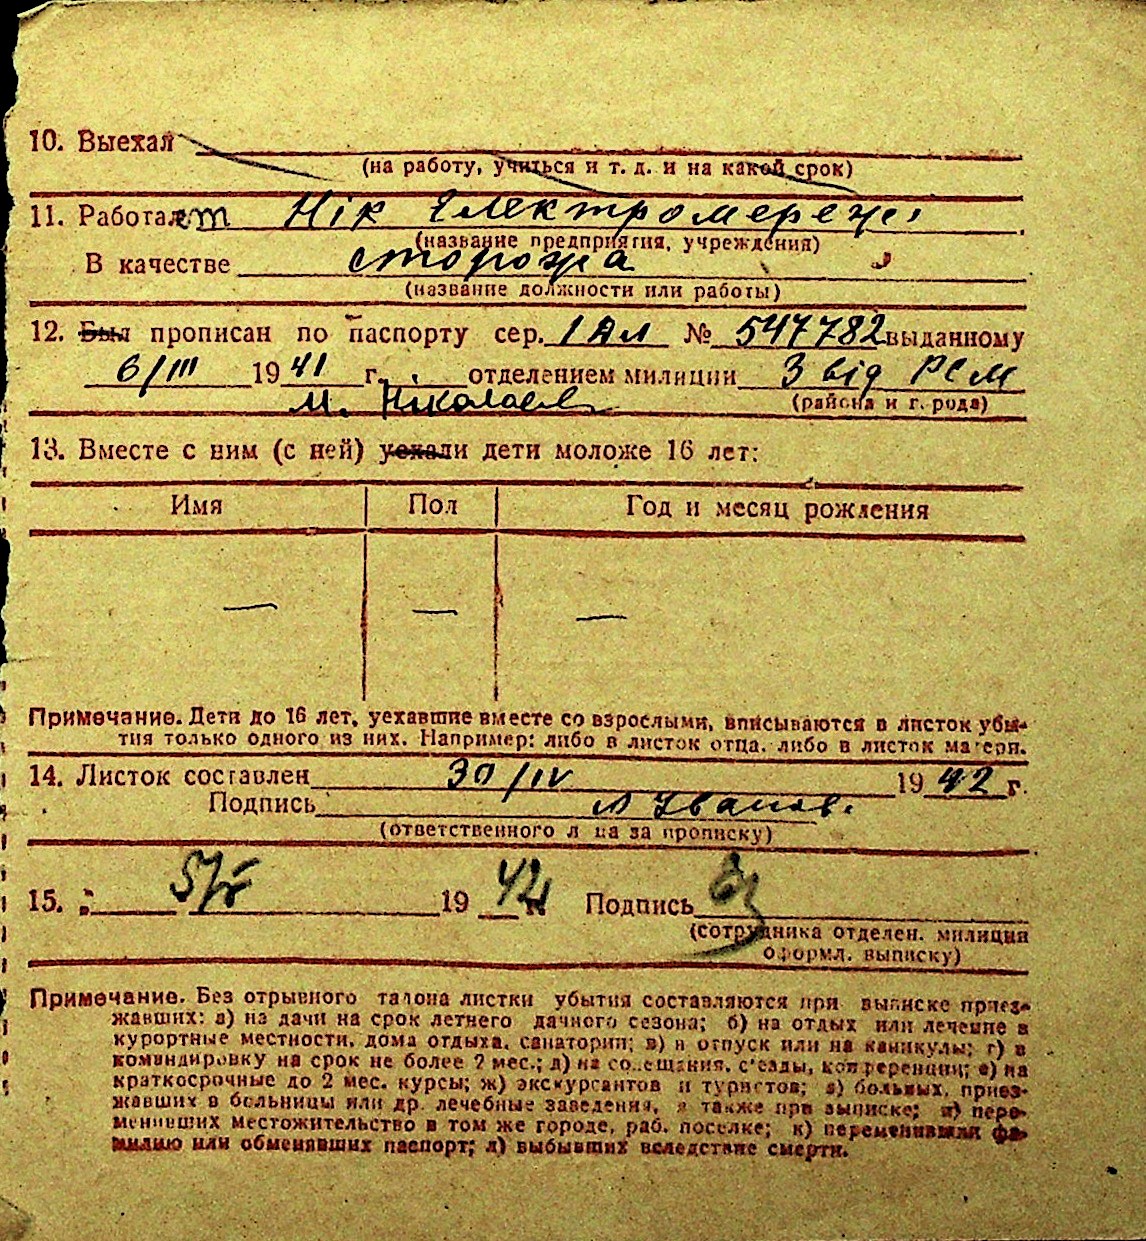 10. Выехал
(на работу, учиться и т. д. и на какой срок)
11. Работает Нік Електромережі
(название предприятия, учреждения)
В качестве сторожа
(название должности или работы)
12. Был прописан по паспорту сер. 1 Ал № 547782 выданному
6/III 1941 г. отделением милиции 3 від РСМ
м. Ніколаев (района и г. рода)
13. Вместе с ним (с ней) уехали дети моложе 16 лет:
Имя Пол Год и месяц рождения
— — —
Примечание. Дети до 16 лет, уехавшие вместе со взрослыми, вписываются в листок убы-
тия только одного из них. Например: либо в листок отца, либо в листок матери.
14. Листок составлен 30/IV 1942 г.
Подпись Іванов.
(ответственного л ца за прописку)
15. 5/V 1942 г. Подпись
(сотрудника отделен. милиции
оформл. выписку)
Примечание. Без отрывного талона листки убытия составляются при выписке приез-
жавших: а) на дачи на срок летнего дачного сезона; б) на отдых или лечение в
курортные местности, дома отдыха, санатории; в) в отпуск или на каникулы; г) в
командировку на срок не более 2 мес.; д) на совещания, с'езды, конференции; е) на
краткосрочные до 2 мес. курсы; ж) экскурсантов и туристов; з) больных, приез-
жавших в больницы или др. лечебные заведения, а также при выписке; и) пере-
менивших местожительство в том же городе, раб. поселке; к) переменивших фа-
милию или обменявших паспорт; л) выбывших вследствие смерти.